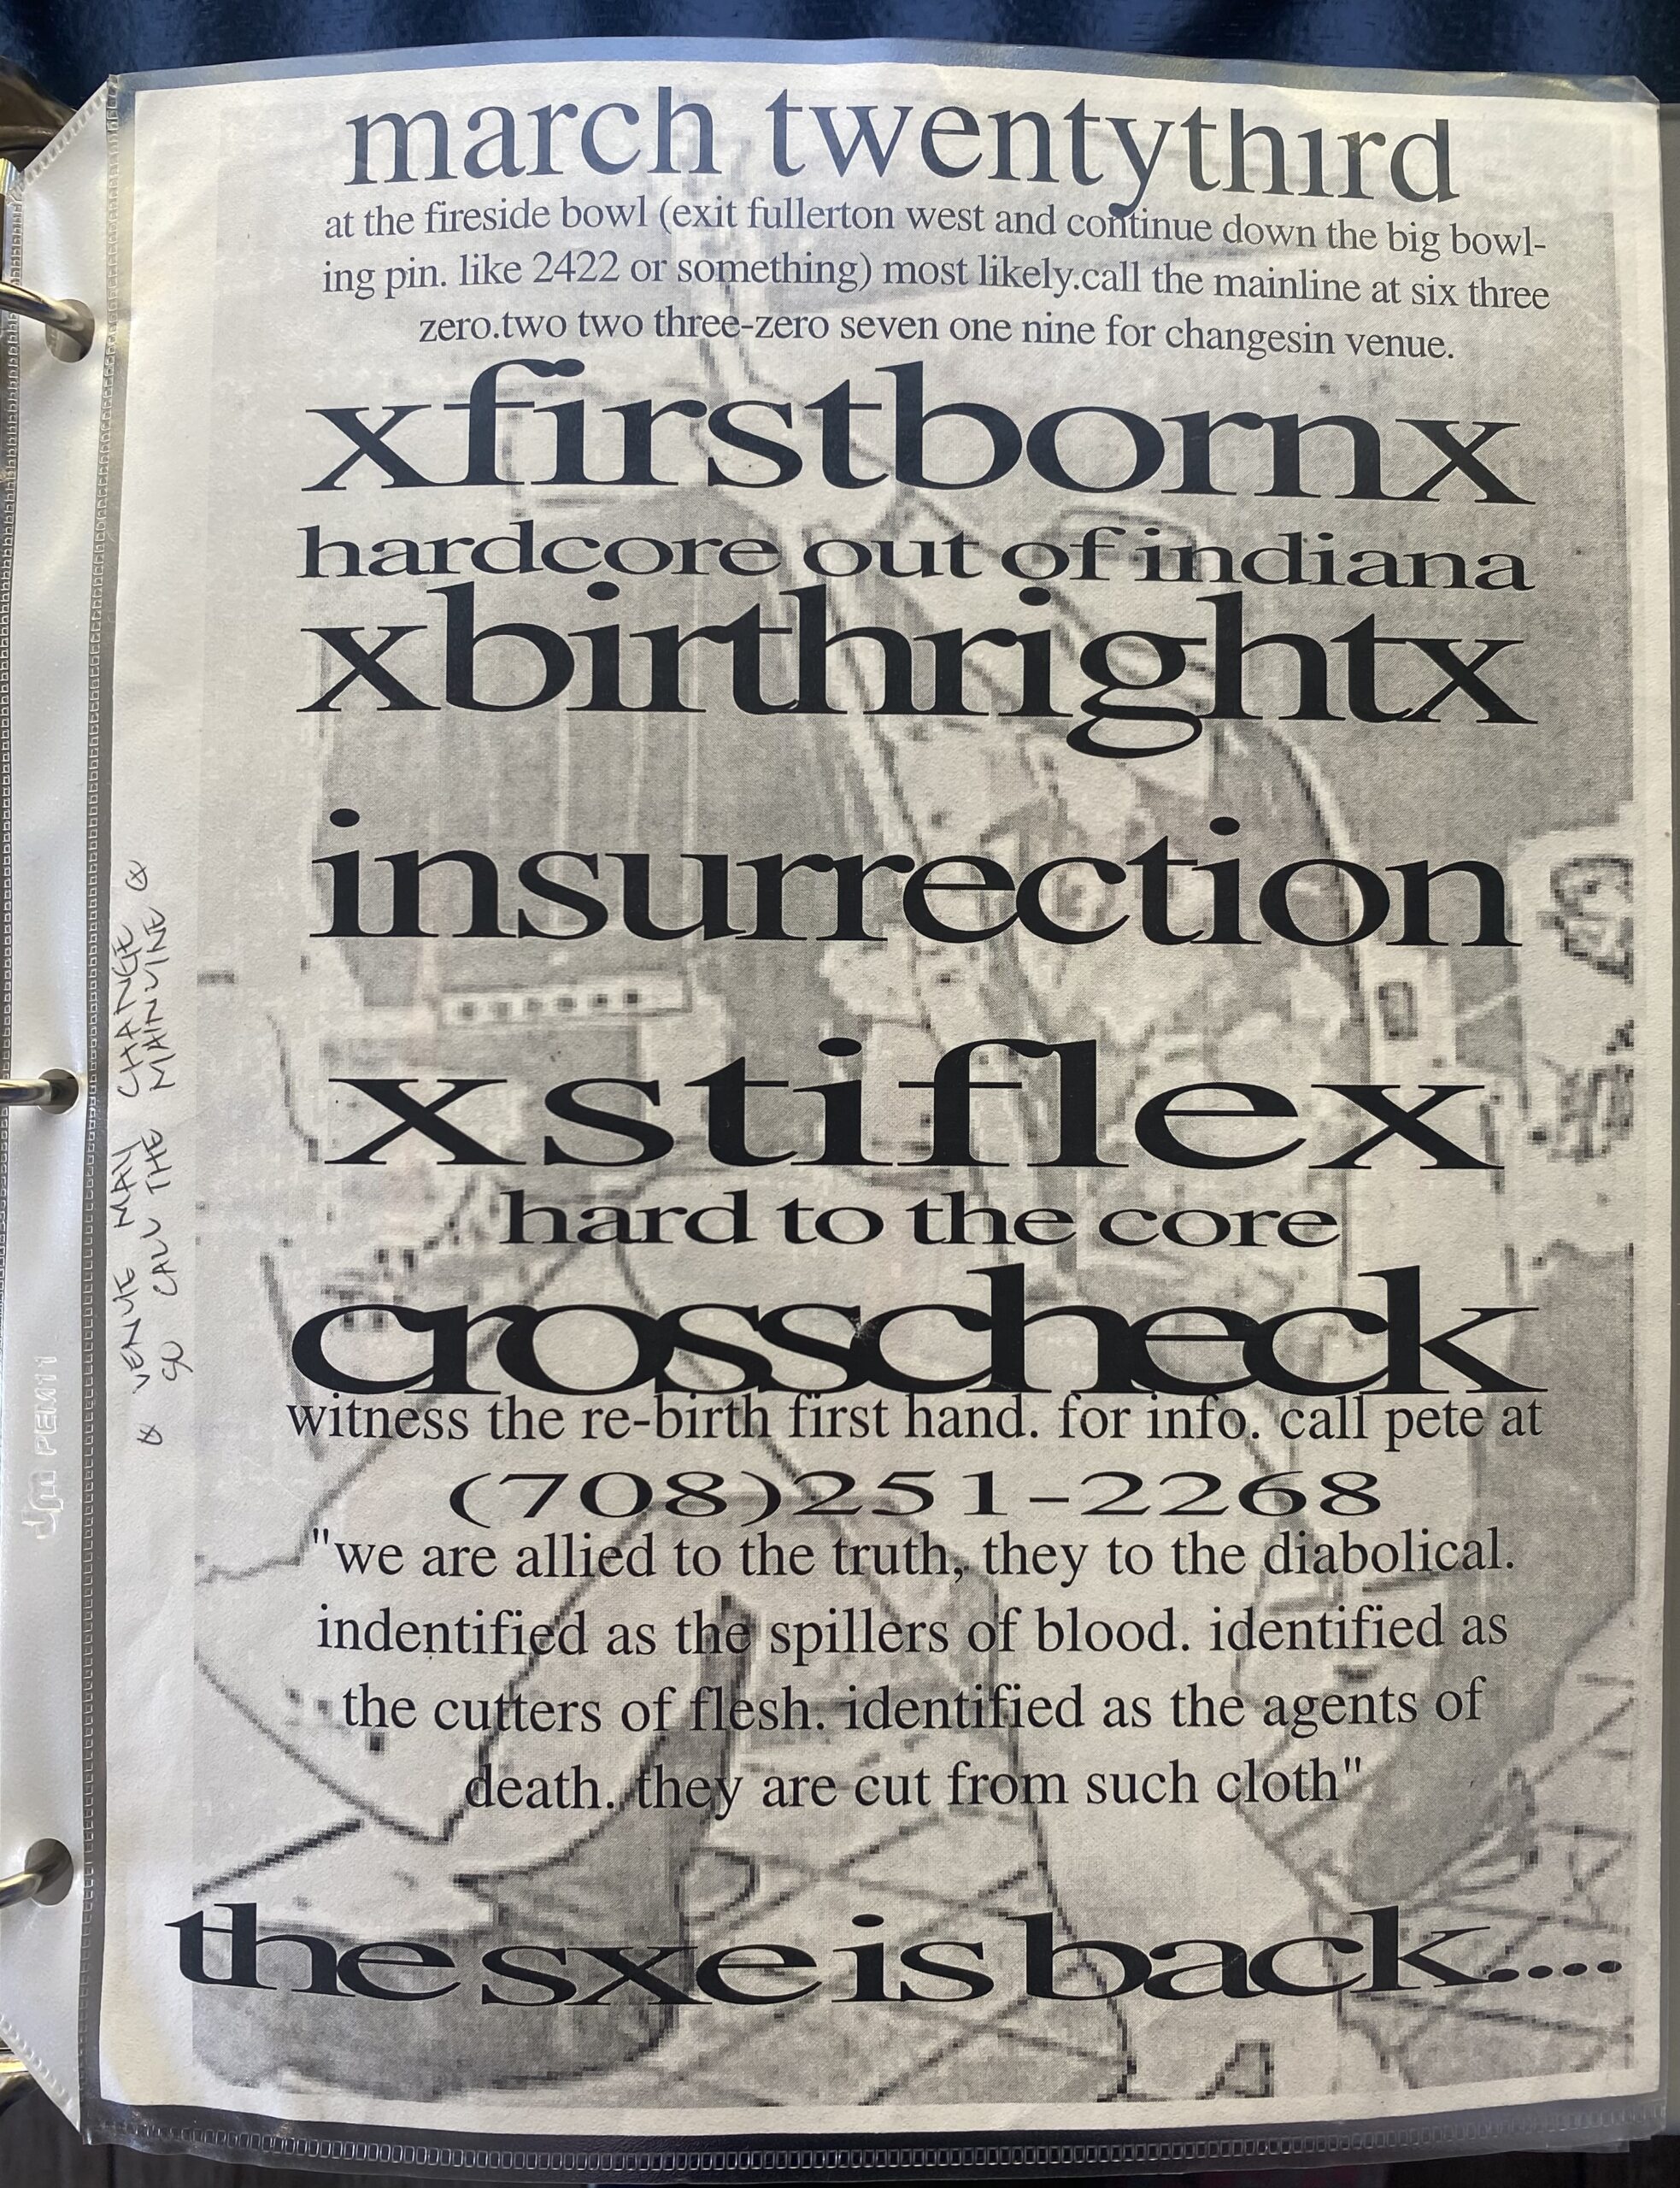 march twentythird
at the fireside bowl (exit fullerton west and continue down the big bowl-
ing pin. like 2422 or something) most likely.call the mainline at six three
zero.two two three-zero seven one nine for changesin venue.
xfirstbornx
hardcore out of indiana
xbirthrightx
insurrection
xstiflex
hard to the core
crosscheck
witness the re-birth first hand. for info. call pete at
(708)251-2268
"we are allied to the truth, they to the diabolical.
indentified as the spillers of blood. identified as
the cutters of flesh. identified as the agents of
death. they are cut from such cloth"
the sxe is back....
VENUE MAY CHANGE
SO CALL THE MAINLINE